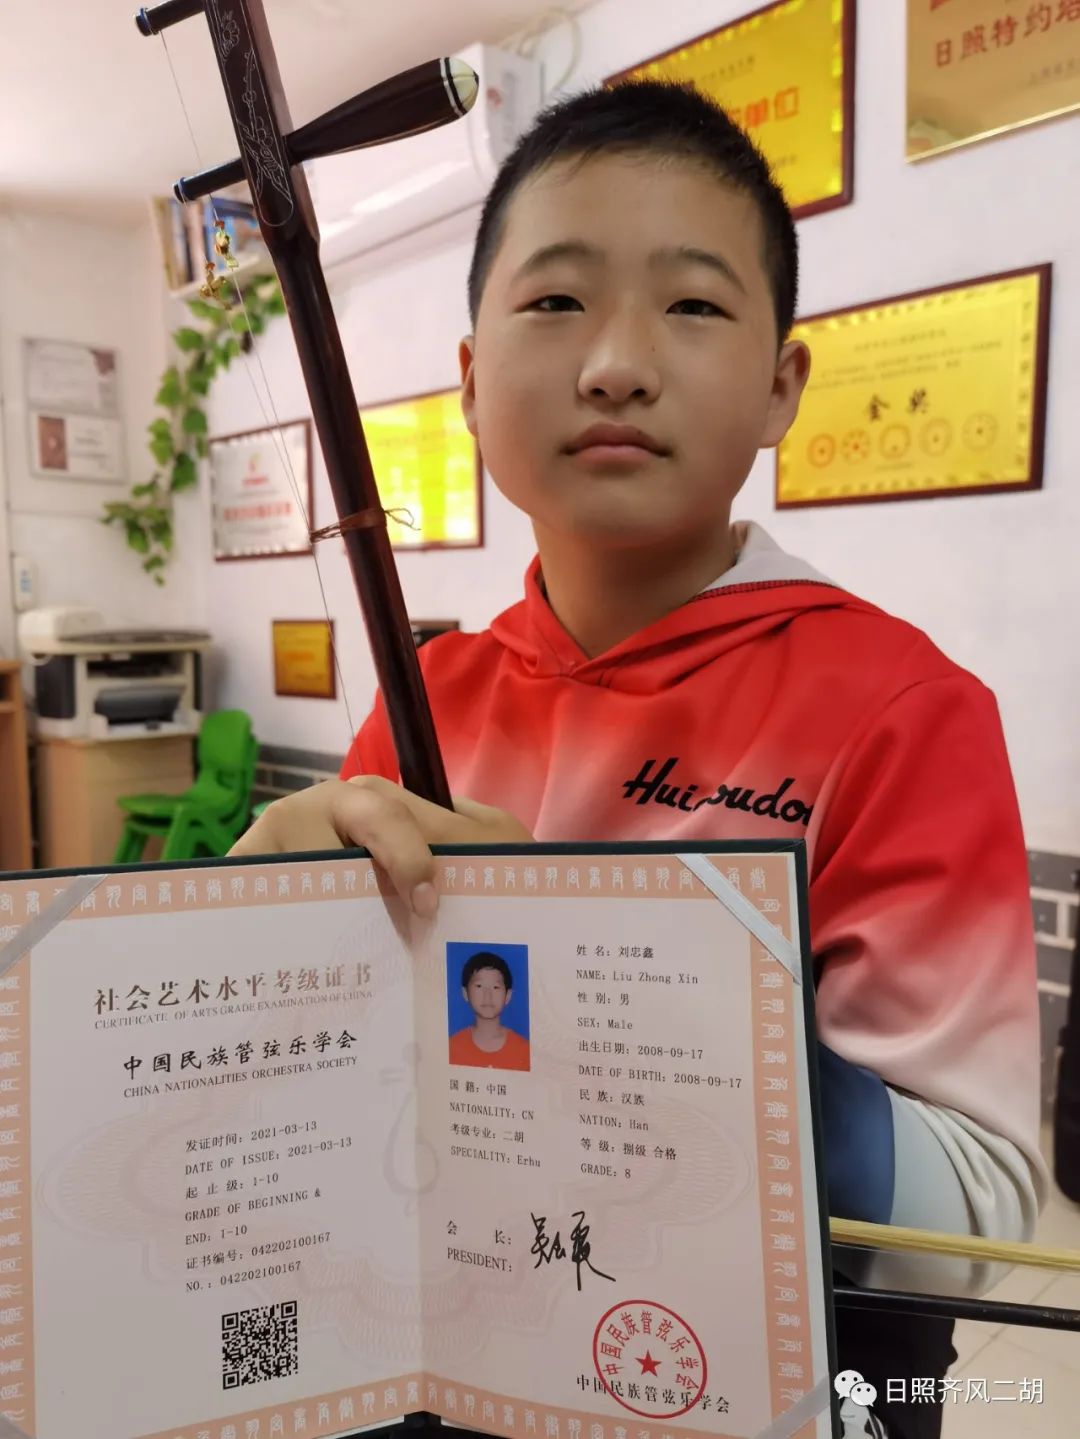 日照特约塔
金奖
Hui
社会艺术水平考级证书
CERTIFICATE OF ARTS GRADE EXAMINATION OF CHINA
中国民族管弦乐学会
CHINA NATIONALITIES ORCHESTRA SOCIETY
发证时间：2021-03-13
DATE OF ISSUE：2021-03-13
起 止 级：1-10
GRADE OF BEGINNING &
END：1-10
证书编号：042202100167
NO.：042202100167
姓 名：刘忠鑫
NAME：Liu Zhong Xin
性 别：男
SEX：Male
出生日期：2008-09-17
DATE OF BIRTH：2008-09-17
国 籍：中国
NATIONALITY：CN
民 族：汉族
NATION：Han
考级专业：二胡
SPECIALITY：Erhu
等 级：捌级 合格
GRADE：8
会 长：
PRESIDENT：
中国民族管弦乐学会
中国民族管弦乐学会
日照齐风二胡